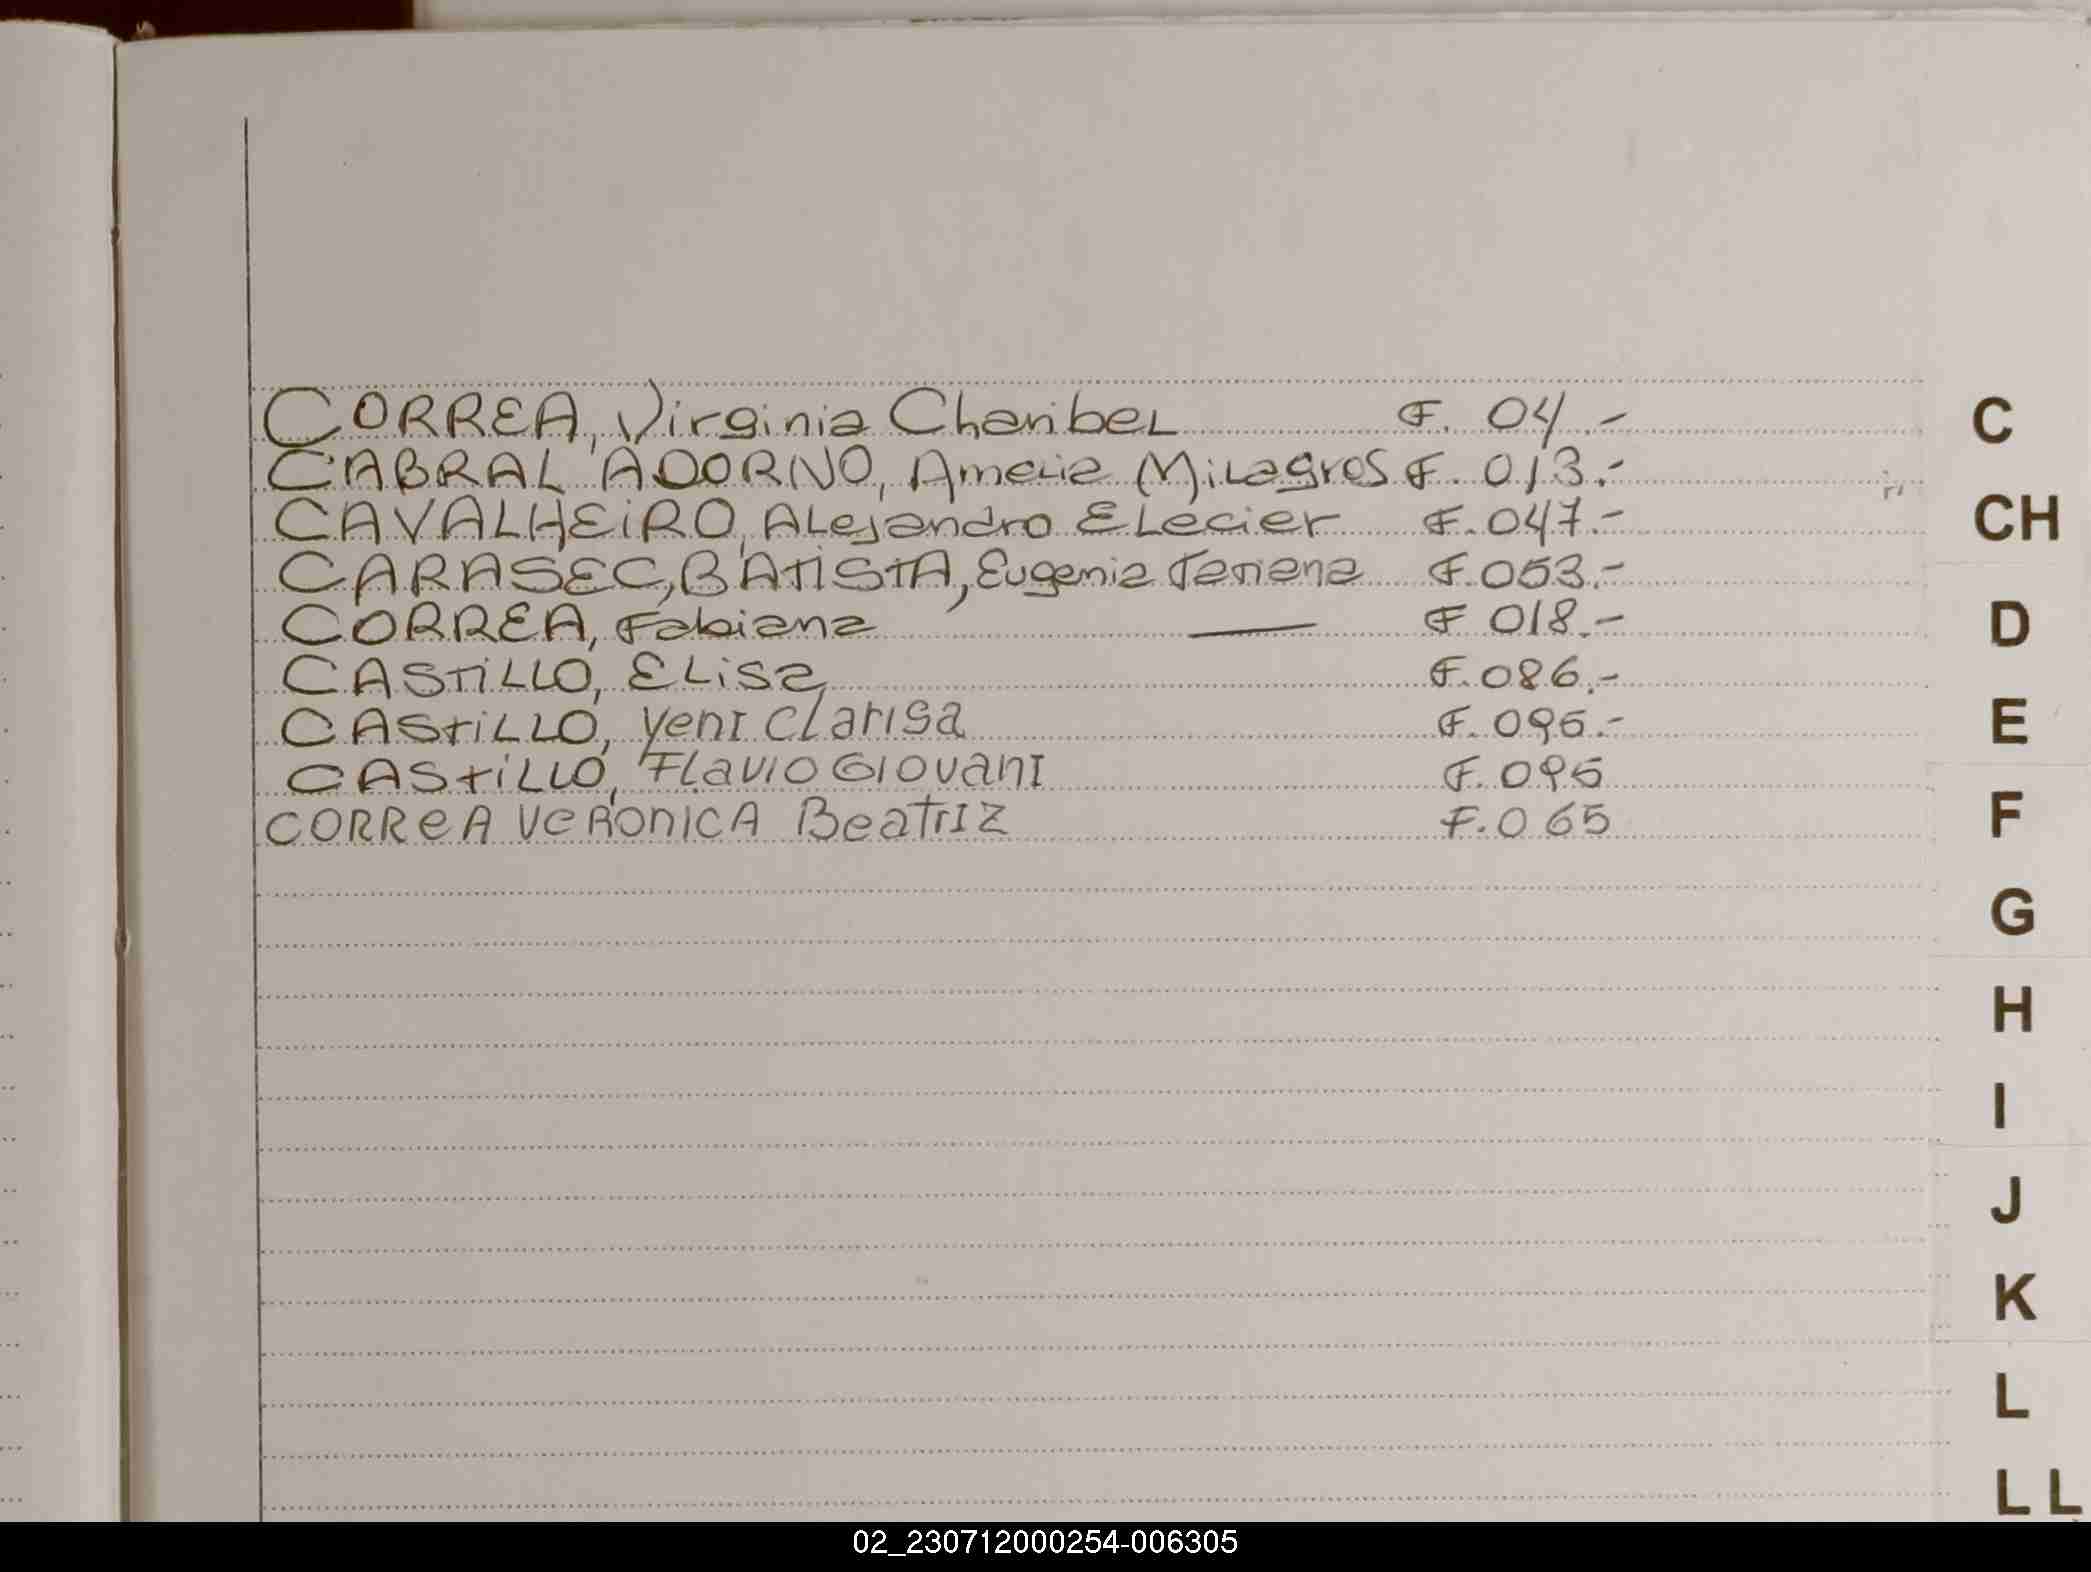 CORREA, Virginia Charibel F. 04.-
CABRAL ADORNO, Amelia Milagros F. 013.-
CAVALHEIRO, Alejandro Elecier F. 047.-
CARASEC, BATISTA, Eugenia Tatiana F. 053.-
CORREA, Fabiana — F 018.-
CASTILLO, Elisa F. 086.-
CASTILLO, Yeni Clarisa F. 096.-
CASTILLO, Flavio Giovani F. 095
CORREA VERONICA Beatriz F. 065
C
CH
D
E
F
G
H
I
J
K
L
LL
02_230712000254-006305